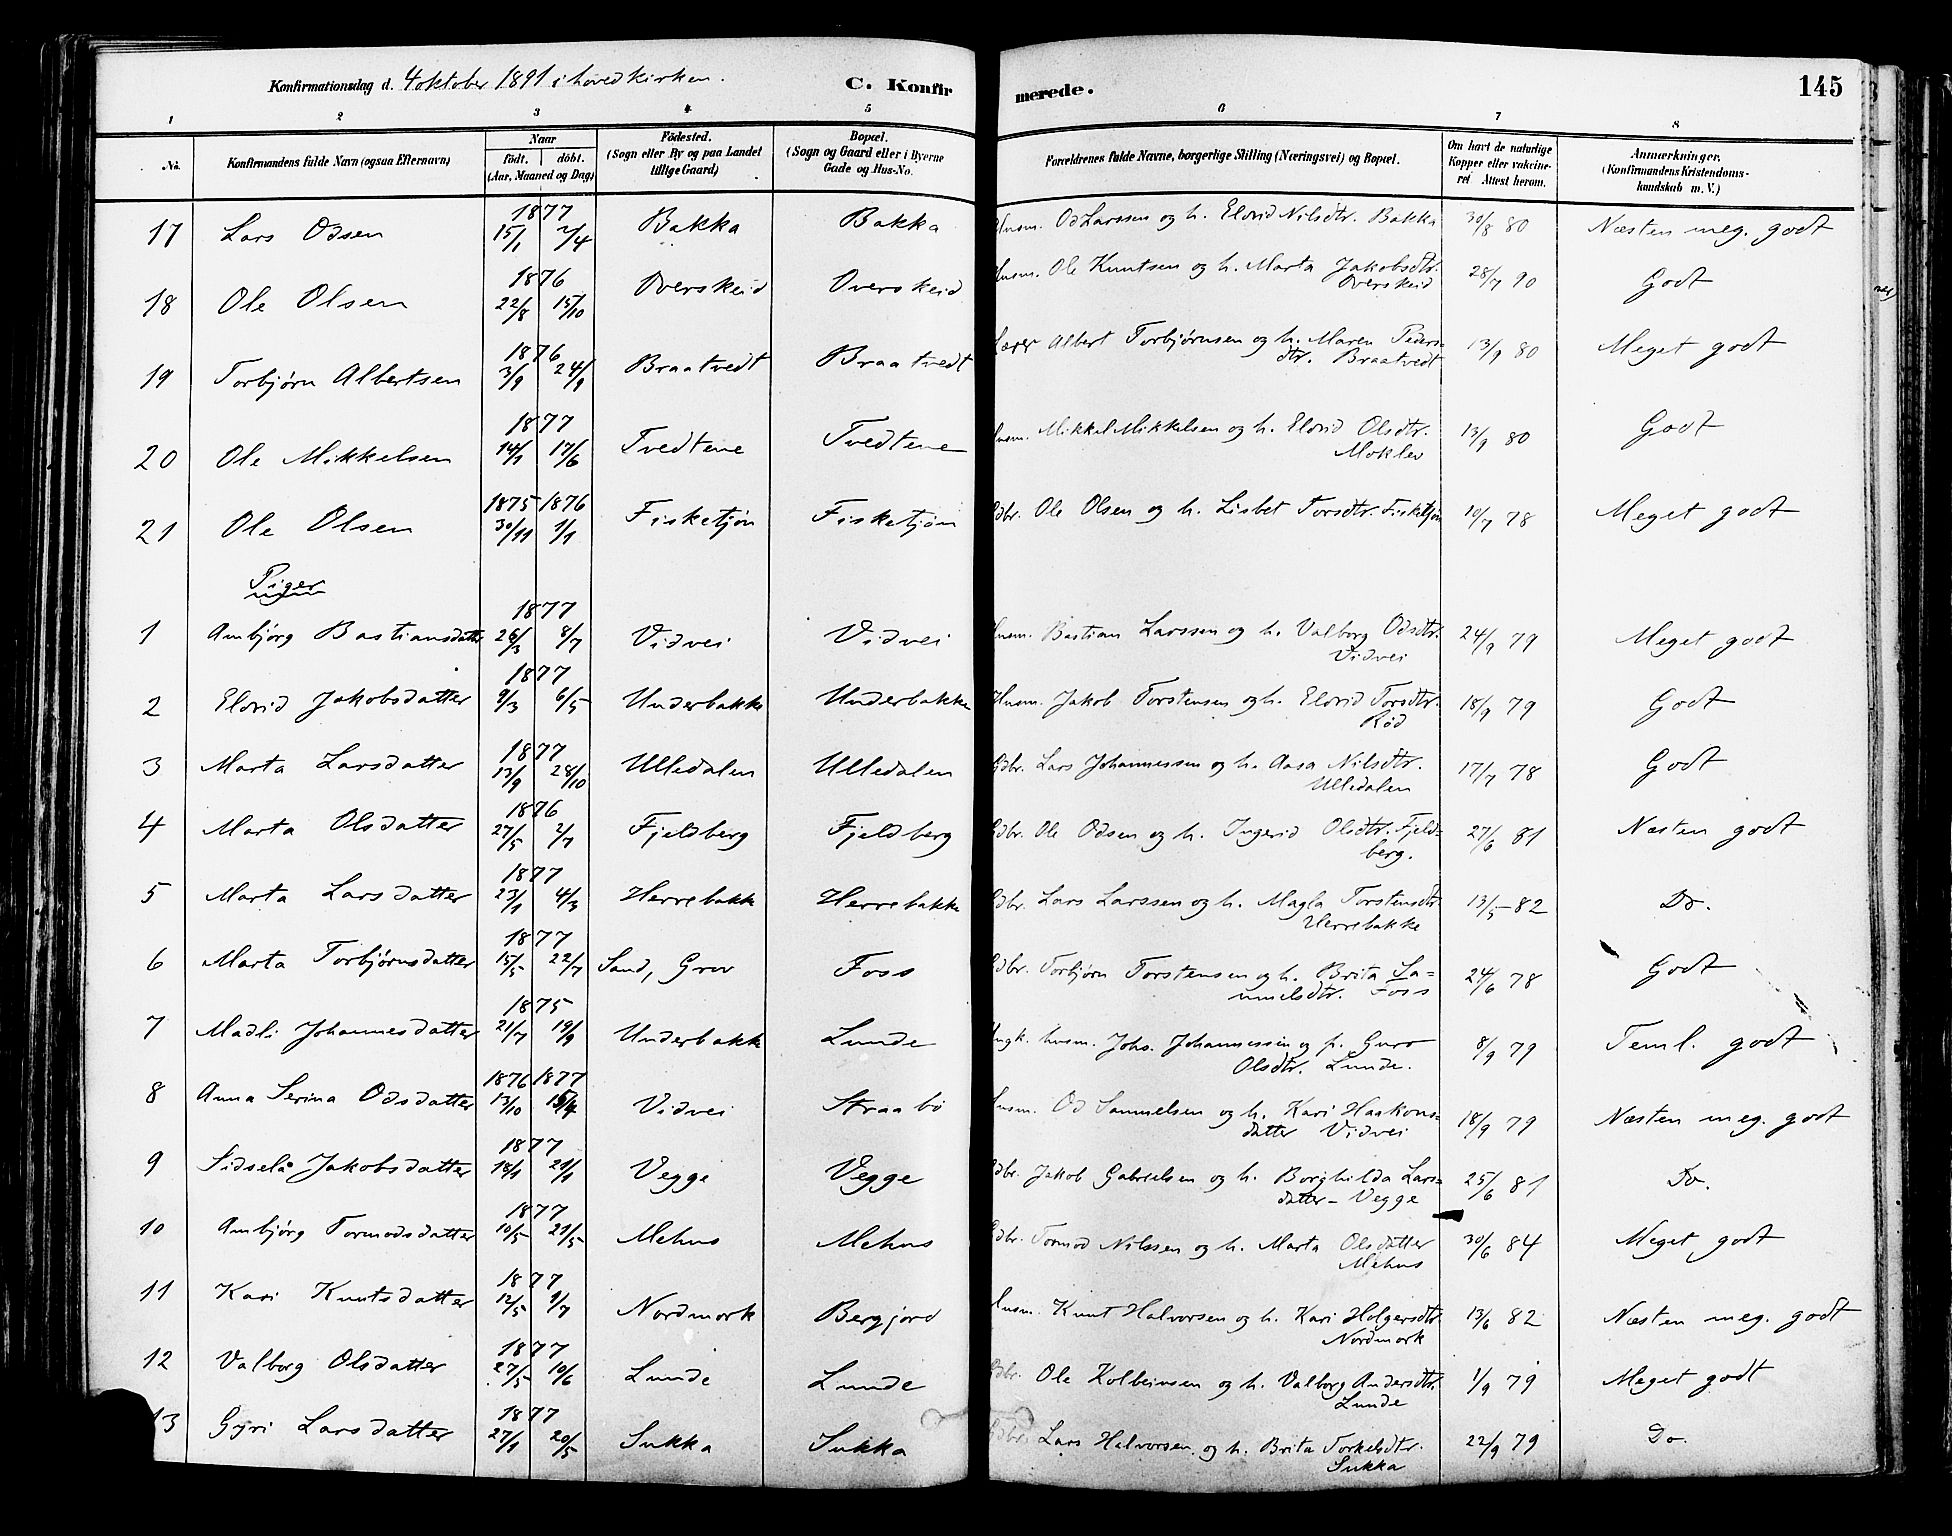 Konfirmationsdag d. 4 oktober 1891 i hovedkirken. C. Konfirmerede. 145
1 2 3 4 5 6 7 8
No. Konfirmandens fulde Navn (ogsaa Efternavn) Naar født. døbt. (Aar, Maaned og Dag) Födested. (Sogn eller By og paa Landet tillige Gaard) Bopæl. (Sogn og Gaard eller i Byerne Gade og Hus-No. Forældrenes fulde Navne, borgerlige Stilling (Næringsvei) og Bopæl. Om havt de naturlige Kopper eller vakcineret Attest herom. Anmærkninger. (Konfirmandens Kristendomskundskab m. V.)
17 Lars Odsen 1877 15/1 2/4 Bakka Bakka Husm. Od Larssen og h. Elovid Nilsdtr. Bakka 30/8 80 Næsten meg. godt
18 Ole Olsen 1876 22/8 15/10 Overskeid Overskeid Husm. Ole Knutsen og h. Marta Jakobsdtr. Overskeid 28/7 90 Godt
19 Torbjørn Albertsen 1876 3/9 24/9 Braatvedt Braatvedt Lærer Albert Torbjørnsen og h. Maren Pedersdtr. Braatvedt 13/9 80 Meget godt
20 Ole Mikkelsen 1877 14/1 17/6 Tvedtene Tvedtene Husm. Mikkel Mikkelsen og h. Elovid Olsdtr. Moklev 13/9 80 Godt
21 Ole Olsen 1875 1876 30/11 1/1 Fisketjøn Fisketjøn Gdbr. Ole Olsen og h. Lisbet Torsdtr. Fisketjøn 10/7 78 Meget godt
Piger
1 Ambjørg Bastiansdatter 1877 26/3 8/7 Vidvei Vidvei Husm. Bastian Larssen og h. Valborg Odsdtr. Vidvei 24/9 79 Meget godt
2 Elovid Jakobsdatter 1877 9/3 6/5 Underbakke Underbakke Husm. Jakob Torstensen og h. Elovid Torsdtr. Rød 18/9 79 Godt
3 Marta Larsdatter 1877 13/9 28/10 Ulledalen Ulledalen Gdbr. Lars Johannessen og h. Aasa Nilsdtr. Ulledalen 17/7 78 Godt
4 Marta Olsdatter 1876 27/5 2/7 Fjeldberg Fjeldberg Gdbr. Ole Odsen og h. Ingerid Olsdtr. Fjeldberg. 27/6 81 Næsten godt
5 Marta Larsdatter 1877 23/1 4/3 Herrebakke Herrebakke Gdbr. Lars Larssen og h. Magla Torstensdtr. Herrebakke 13/5 82 Do.
6 Marta Torbjørnsdatter 1877 15/5 22/7 Sand, Grov Foss Gdbr. Torbjørn Torstensen og h. Brita Samuelsdtr. Foss 24/6 78 Godt
7 Madli Johannesdatter 1875 21/7 19/9 Underbakk Lunde Ungk. husm. Johs. Johannessen og p. Guro Olsdtr. Lunde. 8/9 79 Teml. godt
8 Anna Serina Odsdatter 1876 1877 13/10 Vidvei Straabø Husm. Od Samuelsen og h. Kari Haakonsdatter Vidvei 18/9 79 Næsten meg. godt
9 Sidsela Jakobsdatter 1877 18/1 21/1 Vegge Vegge Gdbr. Jakob Gabrielsen og h. Borghilda Larsdatter Vegge 25/6 81 Do.
10 Ambjørg Tormodsdatter 1877 10/5 21/5 Mehus Mehus Gdbr. Tormod Nilssen og h. Marta Olsdatter Mehus 30/6 84 Meget godt
11 Kari Knutsdatter 1877 12/5 9/7 Nordmork Bergjord Husm. Knut Halvorsen og h. Kari Holgersdtr. Nordmork 13/6 82 Næsten meg. godt
12 Valborg Olsdatter 1877 27/5 10/6 Lunde Lunde Gdbr. Ole Kolbeinsen og h. Valborg Andersdtr. Lunde 1/9 79 Meget godt
13 Gyri Larsdatter 1877 27/1 20/5 Sukka Sukka Gdbr. Lars Halvorsen og h. Brita Torkelsdtr. Sukka 22/9 79 Do.